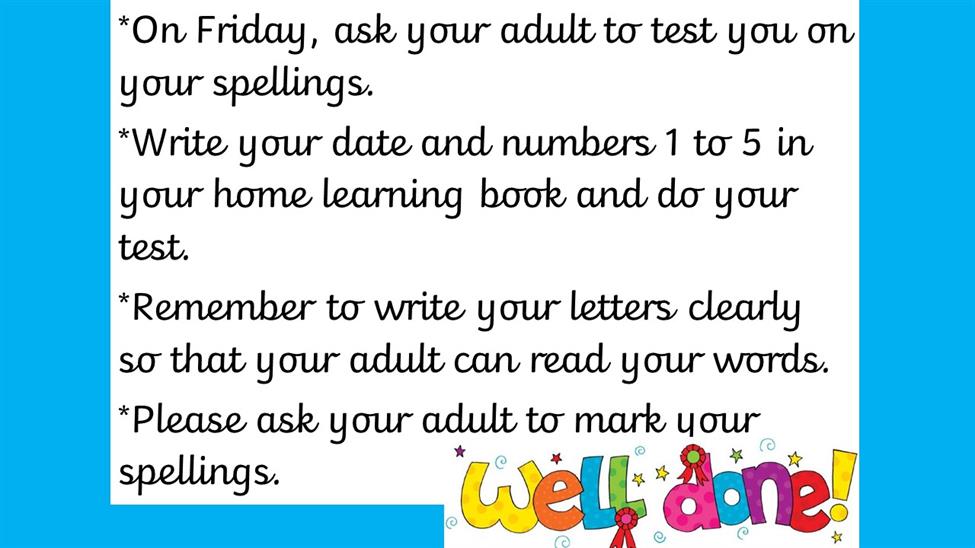 *On Friday, ask your adult to test you on
your spellings.
*Write your date and numbers 1 to 5 in
your home learning book and do your
test.
*Remember to write your letters clearly
so that your adult can read your words.
*Please ask your adult to mark your
spellings.
well done!